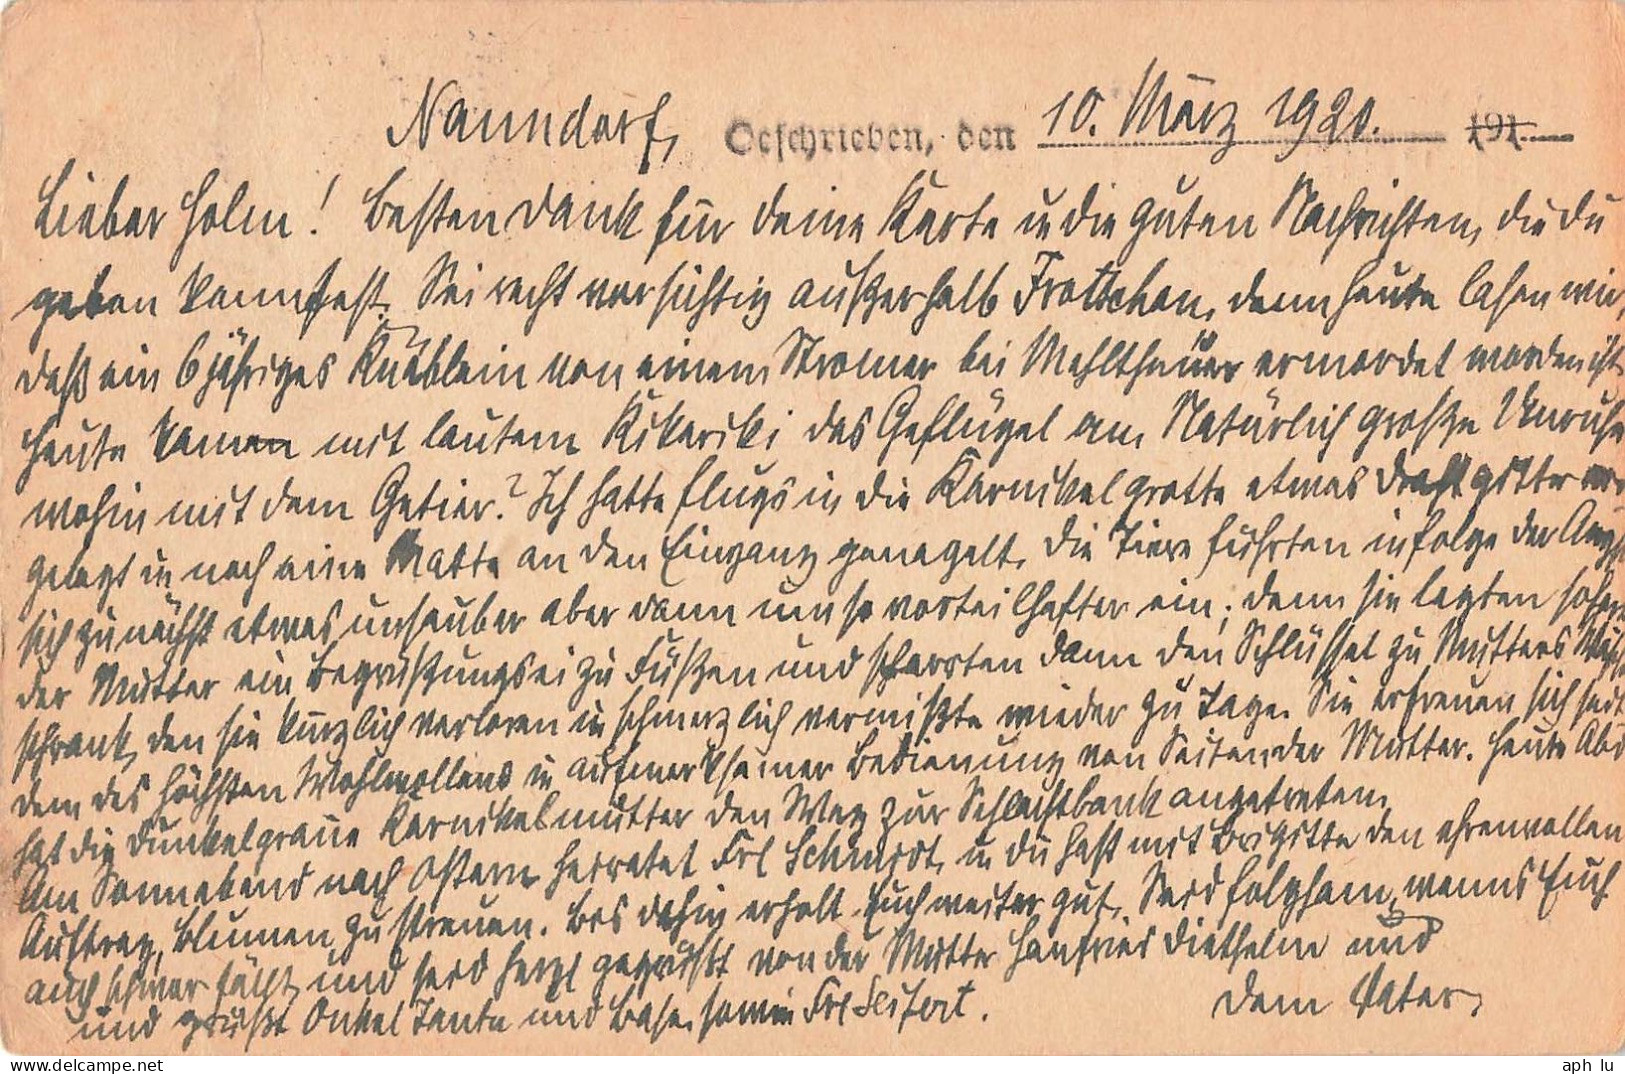 Naundorf, Geschrieben, den 10. März 1920. 191
Lieber Holm! Besten Dank für deine Karte u die guten Nachrichten, die du
geben kannst. Sei recht vorsichtig außerhalb Frottchen, denn heute lasen wir,
daß ein 6 jähriges Knäblein von einem Stromer bei Mehltheuer ermordet worden ist
Heute kam mit lautem Kikeriki das Geflügel an. Natürlich große Unruhe
wohin mit dem Getier? Ich hatte flugs in die Karnikelgrotte etwas Drahtgitter
gelegt u noch eine Matte an den Eingang genagelt. Die Tiere führten infolge der Angst
sich zunächst etwas unsauber aber dann umso vorteilhafter ein; denn sie legten sofort
der Mutter ein Begrüßungsei zu Füßen und scharrten dann den Schlüssel zu Mutters Wäsche
schrank, den sie kürzlich verloren u schmerzlich vermißte wieder zu Tage. Sie erfreuen sich seit
dem des höchsten Wohlwollens u aufmerksamer Bedienung von Seiten der Mutter. Heute Abd
hat die dunkelgraue Karnikelmutter den Weg zur Schlachtbank angetreten.
Am Sonnabend nach Ostern heiratet Frl Schmidt, u du hast mit Brigitte den ehrenvollen
Auftrag, Blumen zu streuen. Bis dahin erholt Euch weiter gut. Seid folgsam, wenns Euch
auch schwer fällt, und seid herzl gegrüßt von der Mutter Hanfried Diethelm und
und grüßt Onkel Tante und Base. sowie Frl Seifert. dem Vater.
aph_lu